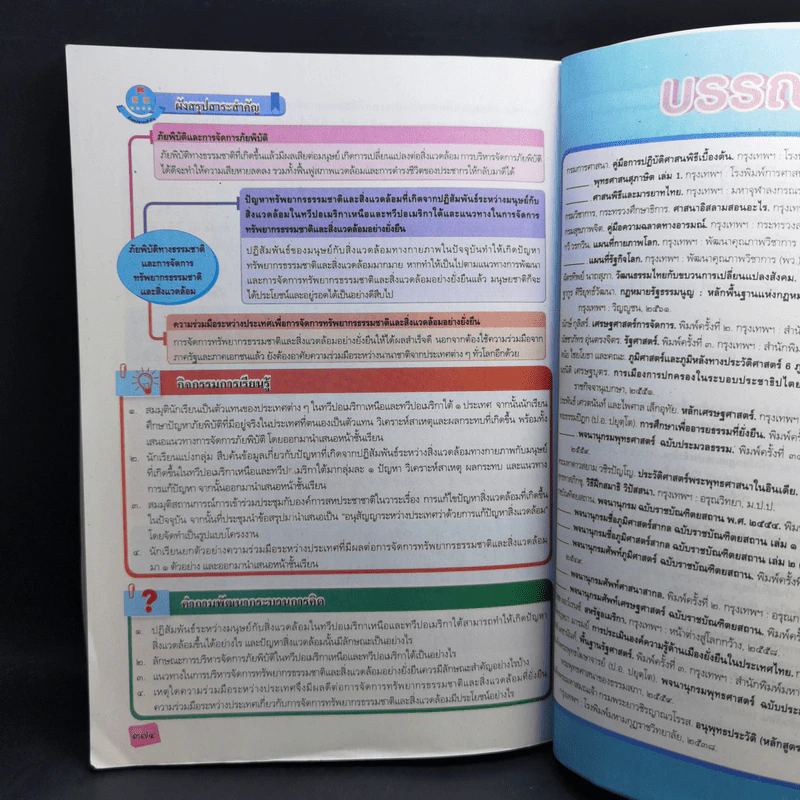 ผังสรุปสาระสำคัญ
ภัยพิบัติและการจัดการภัยพิบัติ
ภัยพิบัติทางธรรมชาติที่เกิดขึ้นแล้วมีผลเสียต่อมนุษย์ เกิดการเปลี่ยนแปลงต่อสิ่งแวดล้อม การบริหารจัดการภัยพิบัติ
ได้ดีจะทำให้ความเสียหายลดลง รวมทั้งฟื้นฟูสภาพแวดล้อมและการดำรงชีวิตของประชากรให้กลับมาดีได้
ภัยพิบัติทางธรรมชาติ
และการจัดการ
ทรัพยากรธรรมชาติ
และสิ่งแวดล้อม
ปัญหาทรัพยากรธรรมชาติและสิ่งแวดล้อมที่เกิดจากปฏิสัมพันธ์ระหว่างมนุษย์กับ
สิ่งแวดล้อมในทวีปอเมริกาเหนือและทวีปอเมริกาใต้และแนวทางในการจัดการ
ทรัพยากรธรรมชาติและสิ่งแวดล้อมอย่างยั่งยืน
ปฏิสัมพันธ์ของมนุษย์กับสิ่งแวดล้อมทางกายภาพในปัจจุบันทำให้เกิดปัญหา
ทรัพยากรธรรมชาติและสิ่งแวดล้อมมากมาย หากทำให้เป็นไปตามแนวทางการพัฒนา
และการจัดการทรัพยากรธรรมชาติและสิ่งแวดล้อมอย่างยั่งยืนแล้ว มนุษยชาติก็จะ
ได้ประโยชน์และอยู่รอดได้เป็นอย่างดีสืบไป
ความร่วมมือระหว่างประเทศเพื่อการจัดการทรัพยากรธรรมชาติและสิ่งแวดล้อมอย่างยั่งยืน
การจัดการทรัพยากรธรรมชาติและสิ่งแวดล้อมอย่างยั่งยืนให้ได้ผลสำเร็จดี นอกจากต้องใช้ความร่วมมือจาก
ภาครัฐและภาคเอกชนแล้ว ยังต้องอาศัยความร่วมมือระหว่างนานาชาติจากประเทศต่าง ๆ ทั่วโลกอีกด้วย
กิจกรรมการเรียนรู้
๑. สมมุตินักเรียนเป็นตัวแทนของประเทศต่าง ๆ ในทวีปอเมริกาเหนือและทวีปอเมริกาใต้ ๑ ประเทศ จากนั้นนักเรียน
ศึกษาปัญหาภัยพิบัติที่มีอยู่จริงในประเทศที่ตนเองเป็นตัวแทน วิเคราะห์สาเหตุและผลกระทบที่เกิดขึ้น พร้อมทั้ง
เสนอแนวทางการจัดการภัยพิบัติ โดยออกมานำเสนอหน้าชั้นเรียน
๒. นักเรียนแบ่งกลุ่ม สืบค้นข้อมูลเกี่ยวกับปัญหาที่เกิดจากปฏิสัมพันธ์ระหว่างสิ่งแวดล้อมทางกายภาพกับมนุษย์
ที่เกิดขึ้นในทวีปอเมริกาเหนือและทวีปอเมริกาใต้มากลุ่มละ ๑ ปัญหา วิเคราะห์สาเหตุ ผลกระทบ และแนวทาง
การแก้ปัญหา จากนั้นออกมานำเสนอหน้าชั้นเรียน
๓. สมมุติสถานการณ์การเข้าร่วมประชุมกับองค์การสหประชาชาติในวาระเรื่อง การแก้ไขปัญหาสิ่งแวดล้อมที่เกิดขึ้น
ในปัจจุบัน จากนั้นที่ประชุมนำข้อสรุปมานำเสนอเป็น "อนุสัญญาระหว่างประเทศว่าด้วยการแก้ปัญหาสิ่งแวดล้อม"
โดยจัดทำเป็นรูปแบบโครงงาน
๔. นักเรียนยกตัวอย่างความร่วมมือระหว่างประเทศที่มีผลต่อการจัดการทรัพยากรธรรมชาติและสิ่งแวดล้อม
มา ๑ ตัวอย่าง และออกมานำเสนอหน้าชั้นเรียน
?
คำถามพัฒนากระบวนการคิด
๑. ปฏิสัมพันธ์ระหว่างมนุษย์กับสิ่งแวดล้อมในทวีปอเมริกาเหนือและทวีปอเมริกาใต้สามารถทำให้เกิดปัญหา
สิ่งแวดล้อมขึ้นได้อย่างไร และปัญหาสิ่งแวดล้อมนั้นมีลักษณะเป็นอย่างไร
๒. ลักษณะการบริหารจัดการภัยพิบัติในทวีปอเมริกาเหนือและทวีปอเมริกาใต้เป็นอย่างไร
๓. แนวทางในการบริหารจัดการทรัพยากรธรรมชาติและสิ่งแวดล้อมอย่างยั่งยืนควรมีลักษณะสำคัญอย่างไรบ้าง
๔. เหตุใดความร่วมมือระหว่างประเทศจึงมีผลดีต่อการจัดการทรัพยากรธรรมชาติและสิ่งแวดล้อมที่ยั่งยืน
ความร่วมมือระหว่างประเทศเกี่ยวกับการจัดการทรัพยากรธรรมชาติและสิ่งแวดล้อมมีประโยชน์อย่างไร
๓๗๔
บรรณ
กรมการศาสนา. คู่มือการปฏิบัติศาสนพิธีเบื้องต้น. กรุงเทพฯ : โรงพิ
พุทธศาสนสุภาษิต เล่ม 1. กรุงเทพฯ : โรงพิมพ์การศาสนา
ศาสนพิธีและมารยาทไทย. กรุงเทพฯ : มหาจุฬาลงกรณ
กรมวิชาการ, กระทรวงศึกษาธิการ. ศาสนาอิสลามสอนอะไร. กรุงเ
กรมสุขภาพจิต. คู่มือความฉลาดทางอารมณ์. กรุงเทพฯ : กระทรวงส
ทวี วรกวิน. แผนที่กายภาพโลก. กรุงเทพฯ : พัฒนาคุณภาพวิชาการ
แผนที่รัฐกิจโลก. กรุงเทพฯ : พัฒนาคุณภาพวิชาการ (พว.)
ฉัตรทิพย์ นาถสุภา. วัฒนธรรมไทยกับขบวนการเปลี่ยนแปลงสังคม.
กฎหมายรัฐธรรมนูญ : หลักพื้นฐานแห่งกฎหม
กรุงเทพฯ : วิญญูชน, ๒๕๖๑.
เศรษฐศาสตร์การจัดการ. พิมพ์ครั้งที่ ๒. กรุงเทพฯ : สำนั
รัฐศาสตร์. พิมพ์ครั้งที่ ๓. กรุงเทพฯ : สำนักพิม
ภูมิศาสตร์และภูมิหลังทางประวัติศาสตร์ 6 ภู
การเมืองการปกครองในระบอบประชาธิปไตย
หลักเศรษฐศาสตร์. กรุงเทพฯ
(ป.อ. ปยุตฺโต). การศึกษาเพื่ออารยธรรมที่ยั่งยืน.
พจนานุกรมพุทธศาสตร์ ฉบับประมวลธรรม. พิมพ์ครั้งที่ ๓๑
๒๕๕๙.
ประวัติศาสตร์พระพุทธศาสนาในอินเดีย.
วิธีฝึกสมาธิ วิปัสสนา. กรุงเทพฯ : อรุณวิทยา, ม.ป.ป.
พจนานุกรม ฉบับราชบัณฑิตยสถาน พ.ศ. ๒๕๕๔.